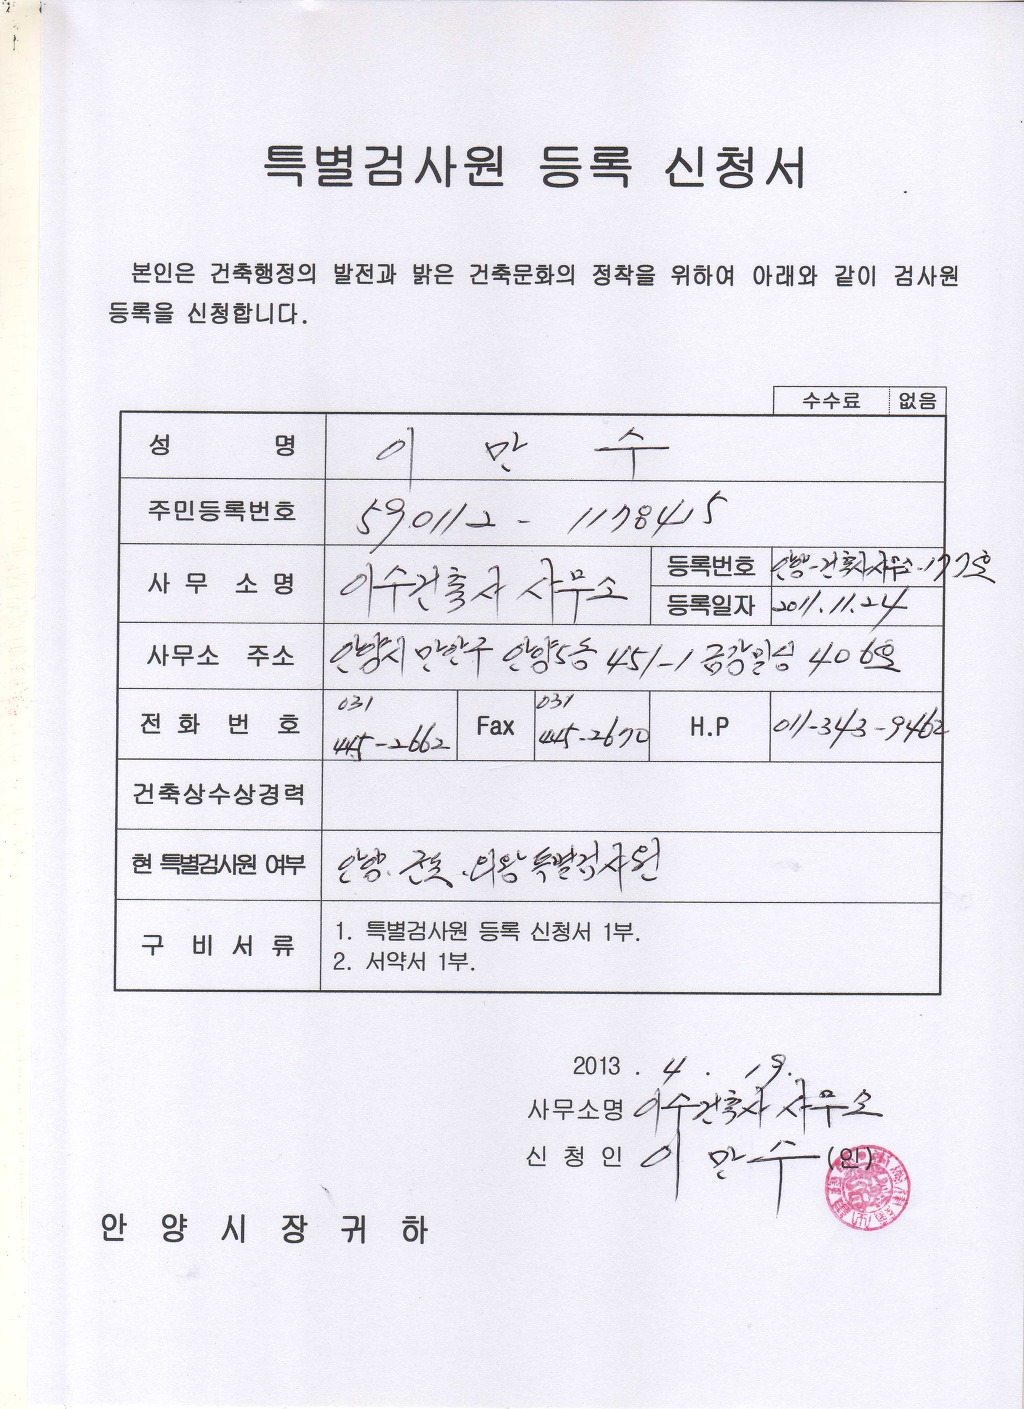 특별검사원 등록 신청서
본인은 건축행정의 발전과 밝은 건축문화의 정착을 위하여 아래와 같이 검사원
등록을 신청합니다.
수수료 없음
성 명 이 만 수
주민등록번호 590112 - 1178415
사 무 소 명 이수건축사 사무소 등록번호 안양-건축사사무소-177호
등록일자 2011.11.24
사무소 주소 안양시 만안구 안양5동 451-1 금강빌딩 406호
전 화 번 호 031 445-2662 Fax 031 445-2670 H.P 011-343-9462
건축상수상경력
현 특별검사원 여부 안양.군포.의왕특별검사원
구 비 서 류 1. 특별검사원 등록 신청서 1부.
2. 서약서 1부.
2013 . 4 . 19.
사무소명 이수건축사 사무소
신 청 인 이 만 수 (인)
안 양 시 장 귀 하